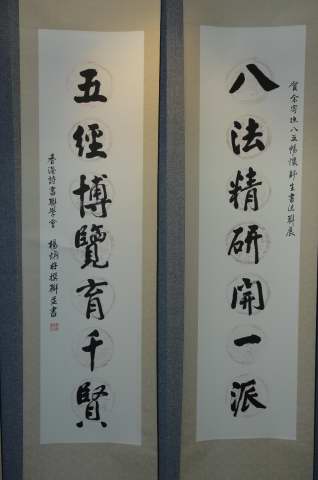 賀余寄撫八五暢懷師生書法聯展
八法精研開一派
五經博覽育千賢
香港詩書聯學會 楊炳好撰聯並書